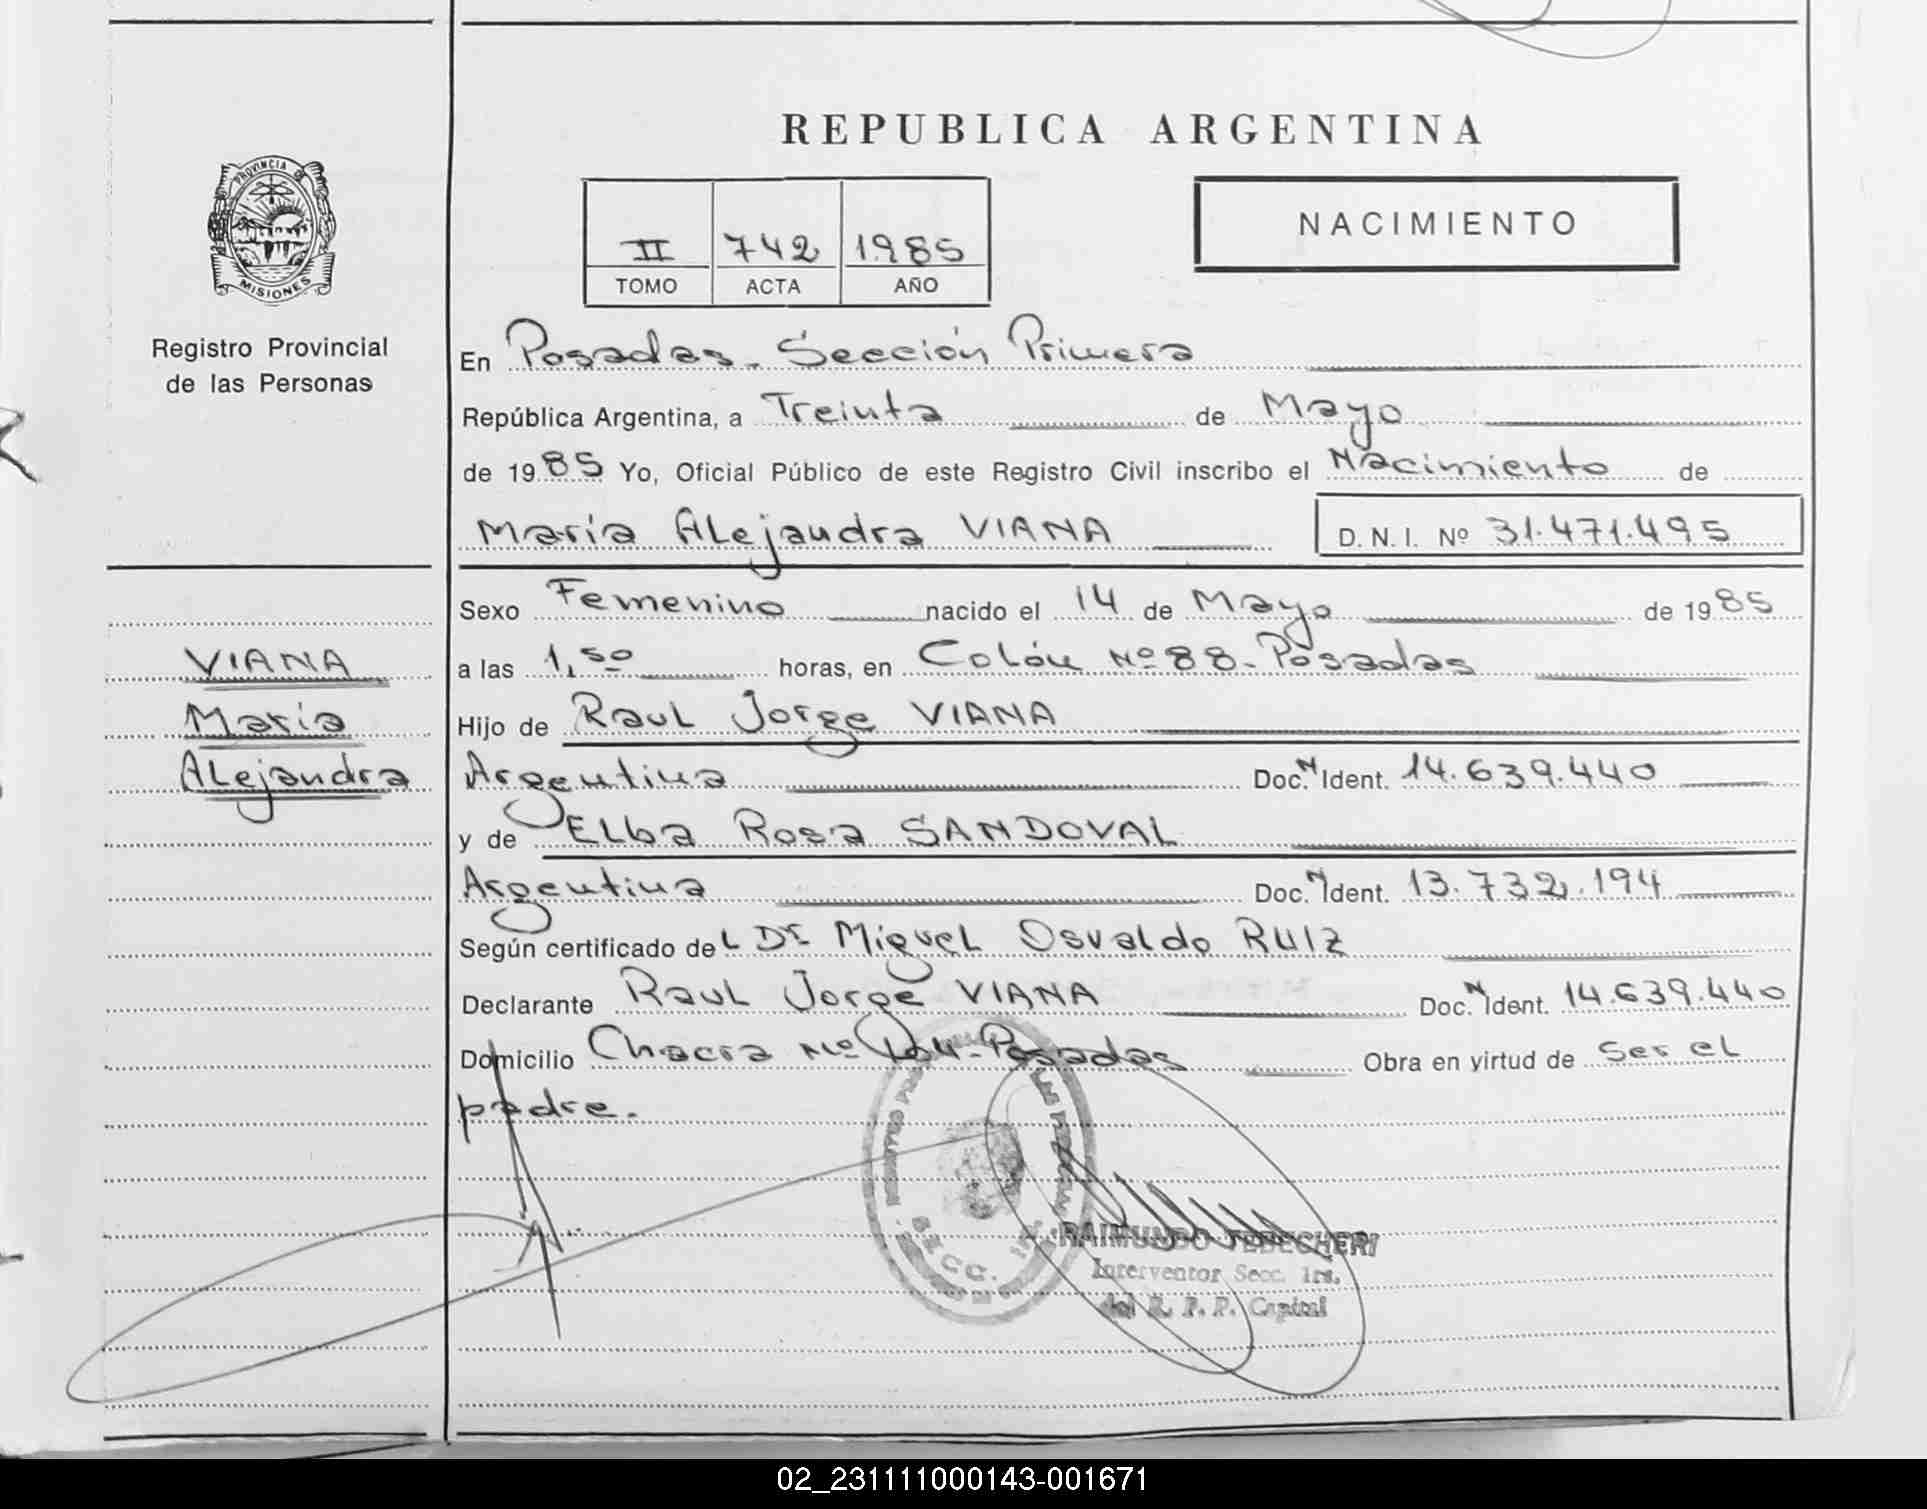 REPUBLICA ARGENTINA
PROVINCIA DE
MISIONES
Registro Provincial
de las Personas
II 742 1985
TOMO ACTA AÑO
NACIMIENTO
En Posadas. Sección Primera
República Argentina, a Treinta de Mayo
de 1985 Yo, Oficial Público de este Registro Civil inscribo el Nacimiento de
María Alejandra VIANA D. N. I. Nº 31.471.495
Sexo Femenino nacido el 14 de Mayo de 1985
VIANA
María
Alejandra
a las 1,50 horas, en Colón Nº 88-Posadas
Hijo de Raul Jorge VIANA
Argentina Doc. N Ident. 14.639.440
y de Elba Rosa SANDOVAL
Argentina Doc. N Ident. 13.732.194
Según certificado del Dr Miguel Osvaldo RUIZ
Declarante Raul Jorge VIANA Doc. N Ident. 14.639.440
Domicilio Chacra Nº Posadas Obra en virtud de Ser el
padre.
SECC.
RAIMUNDO
Interventor Secc. 1ra.
del R. P. P. Capital
02_231111000143-001671